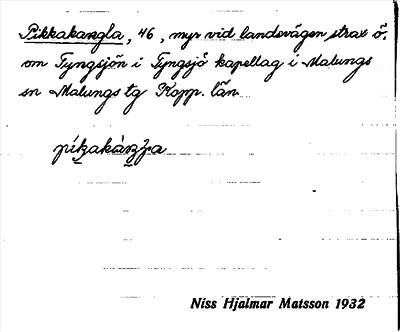 Pikkakangla, 46, myr vid landsvägen strax ö.
om Tyngsjön i Tyngsjö kapellag i Malungs
sn Malungs tg Kopp. län
Niss Hjalmar Matsson 1932